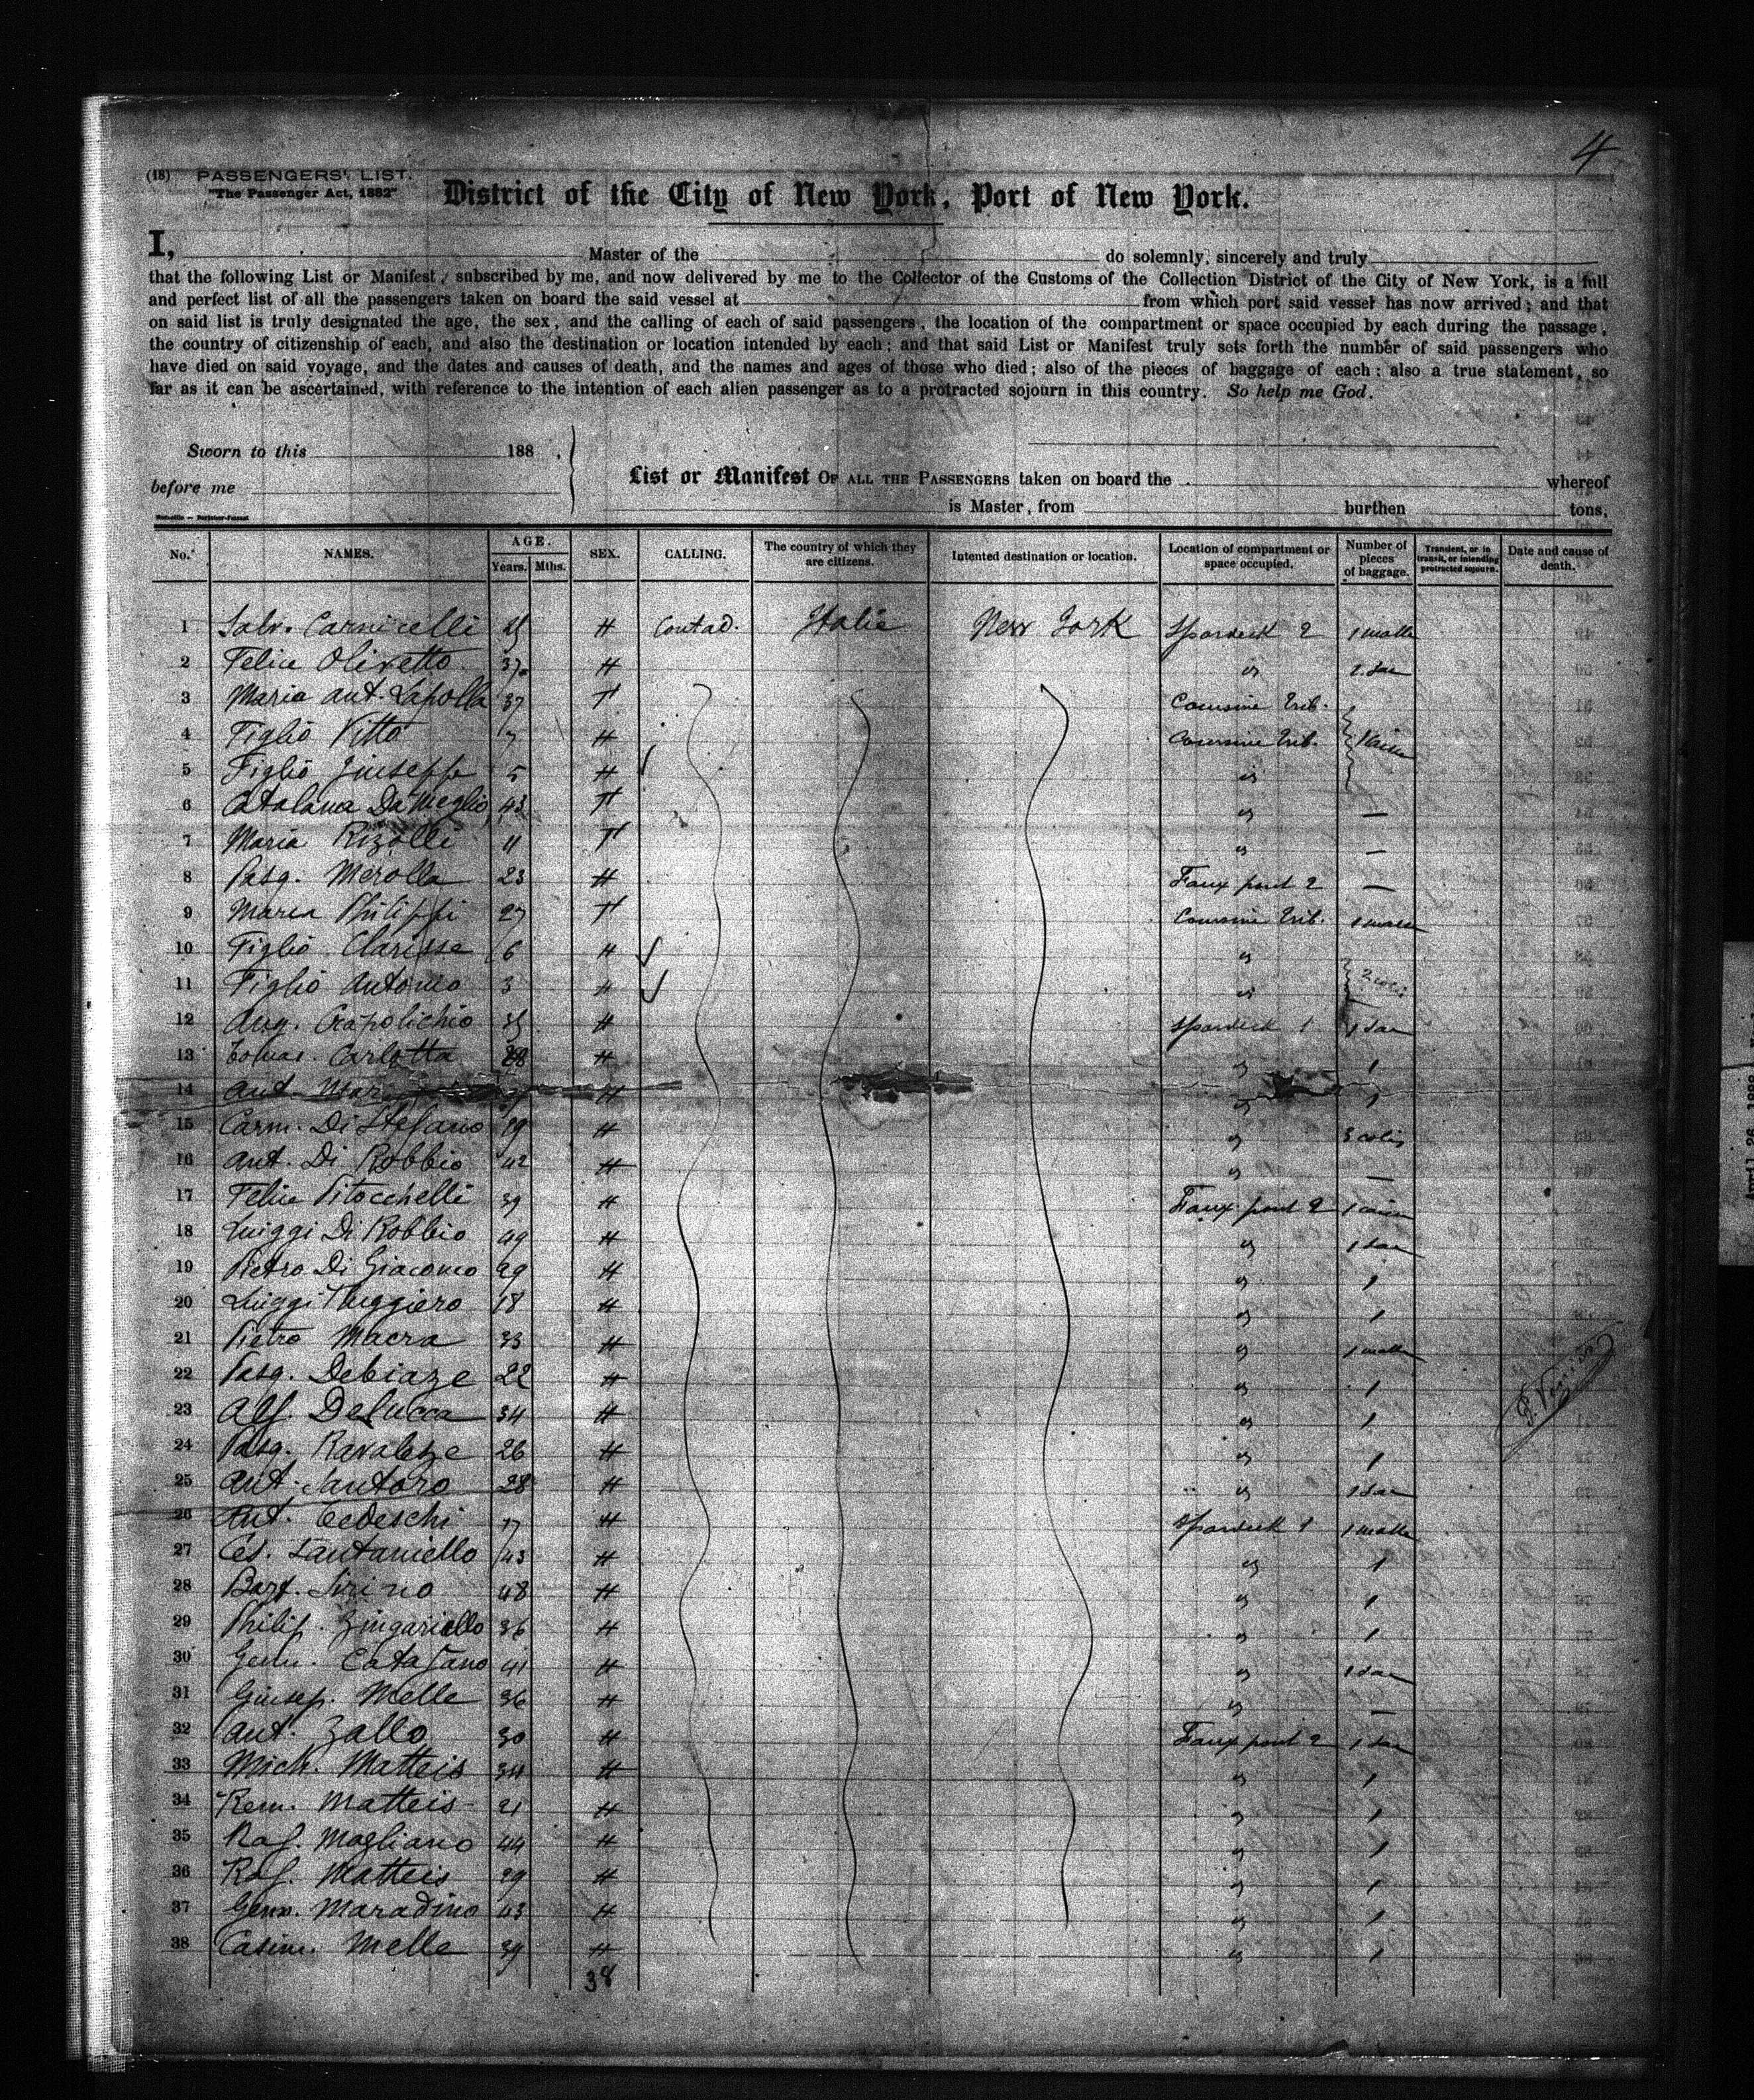 4
(18) PASSENGERS' LIST.
"The Passenger Act, 1882"
District of the City of New York, Port of New York.
I, Master of the do solemnly, sincerely and truly
that the following List or Manifest, subscribed by me, and now delivered by me to the Collector of the Customs of the Collection District of the City of New York, is a full
and perfect list of all the passengers taken on board the said vessel at from which port said vessel has now arrived; and that
on said list is truly designated the age, the sex, and the calling of each of said passengers, the location of the compartment or space occupied by each during the passage,
the country of citizenship of each, and also the destination or location intended by each; and that said List or Manifest truly sets forth the number of said passengers who
have died on said voyage, and the dates and causes of death, and the names and ages of those who died; also of the pieces of baggage of each: also a true statement, so
far as it can be ascertained, with reference to the intention of each alien passenger as to a protracted sojourn in this country. So help me God.
Sworn to this 188 .
before me
List or Manifest OF ALL THE PASSENGERS taken on board the whereof
is Master, from burthen tons,
No. NAMES. AGE. Years. Mths. SEX. CALLING. The country of which they are citizens. Intented destination or location. Location of compartment or space occupied. Number of pieces of baggage. Transient, or in transit, or intending protracted sojourn. Date and cause of death.
1 Salv. Carnicelli H Contad. Italie New York Spardeck 2 1 malle
2 Felice Olivetto 37 H id 1 sac
3 Maria Ant. Lapolla 37 F Coursive Trib.
4 Figlio Vitto 7 H Coursive Trib.
5 Figlio Giuseppe 5 H id
6 Catalana Da Meglio 43 F id —
7 Maria Rizolli 11 F id —
8 Pasq. Merolla 23 H Faux pont 2 —
9 Maria Philippi 27 F Coursive Trib. 1 malle
10 Figlio Clarisse 6 H id
11 Figlio Antonio 3 H id 2 colis
12 Ang. Crapolichio 35 H Spardeck 1 1 sac
13 Tomas. Carlotta 28 H id 1
14 Ant. H id 1
15 Carm. Di Stefano 19 H id 3 colis
16 Ant. Di Robbio 42 H id —
17 Felice Pitocchelli 39 H Faux pont 2
18 Luiggi Di Robbio 49 H id 1 sac
19 Pietro Di Giacomo 29 H id 1
20 Luiggi Ruggiero 18 H id 1
21 Pietro Macra 33 H id 1 malle
22 Pasq. Debiaze 22 H id 1
23 Alf. Delucca 34 H id 1
24 Pasq. Ravaleze 26 H id 1
25 Ant. Santoro 28 H id 1 sac
26 Ant. Tedeschi 17 H Spardeck 1 1 malle
27 Ces. Santaniello 43 H id 1
28 Bart. Sirino 48 H id 1
29 Philip. Zingariello 36 H id 1
30 Catalano 41 H id 1 sac
31 Giusep. Melle 36 H id —
32 Ant. Zallo 30 H Faux pont 2 1 sac
33 Mich. Matteis 34 H id 1
34 Rem. Matteis 21 H id 1
35 Raf. Magliano 44 H id 1
36 Raf. Matteis 29 H id 1
37 Genn. Maradino 43 H id 1
38 Casim. Melle 39 H id 1
38